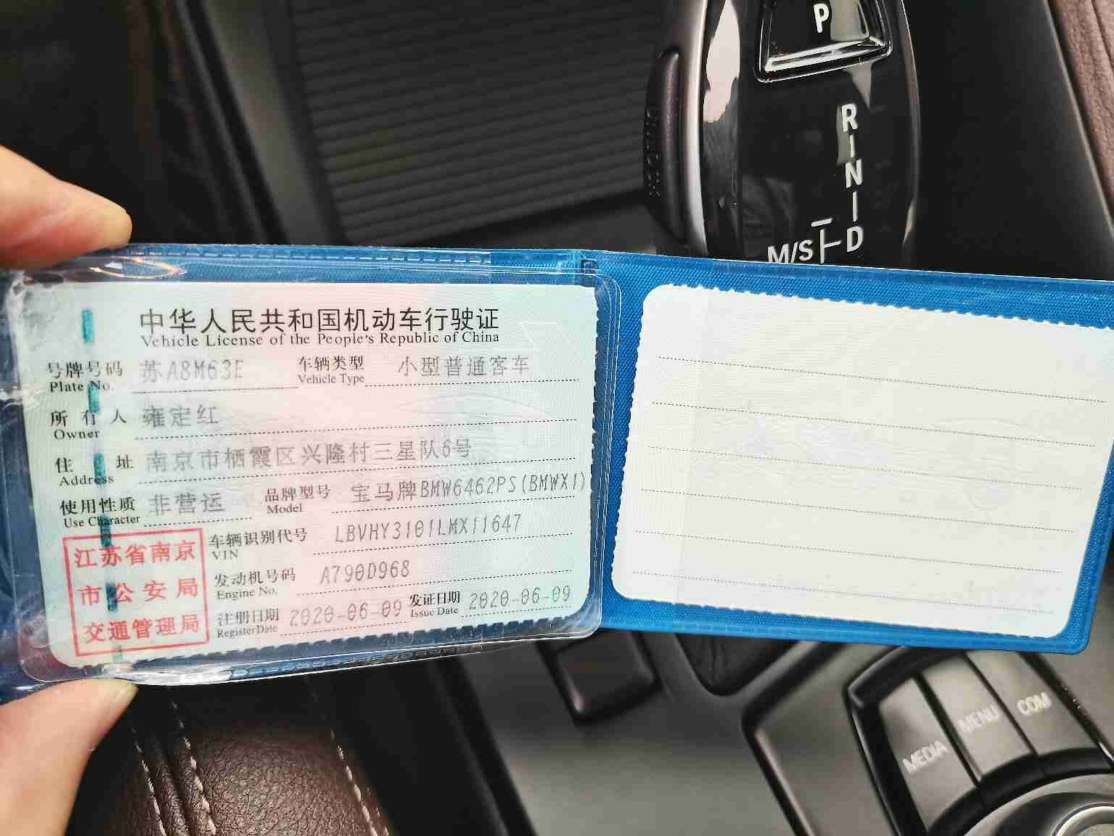 P
R
N
D
M/S
中华人民共和国机动车行驶证
Vehicle License of the People's Republic of China
号牌号码 苏A8M63E 车辆类型 小型普通客车
Plate No. Vehicle Type
所有人 雍定红
Owner
住址 南京市栖霞区兴隆村三星队6号
Address
使用性质 非营运 品牌型号 宝马牌BMW6462PS(BMWX1)
Use Character Model
江苏省南京
市公安局
交通管理局
车辆识别代号 LBVHY3101LMX11647
VIN
发动机号码 A790D968
Engine No.
注册日期 2020-06-09 发证日期 2020-06-09
Register Date Issue Date
MEDIA
MENU
COM